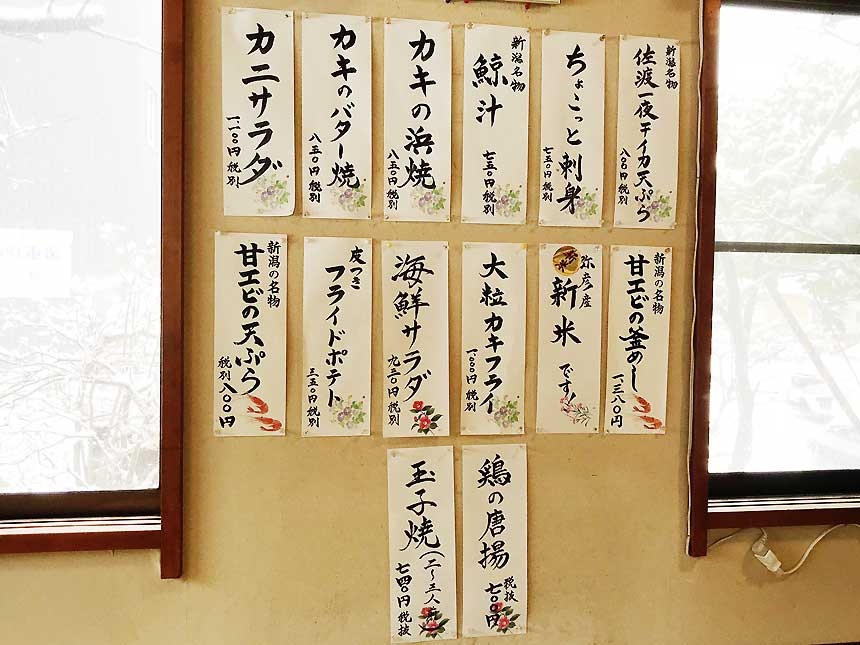 新潟名物
佐渡一夜干イカ天ぷら
八〇〇円税別
ちょこっと刺身
七五〇円税別
新潟名物
鯨汁
七五〇円税別
カキの浜焼
八五〇円税別
カキのバター焼
八五〇円税別
カニサラダ
一、一〇〇円税別
新潟の名物
甘エビの釜めし
一、三八〇円
弥彦産
新米
です!
大粒カキフライ
一、〇〇〇円税別
海鮮サラダ
九三〇円税別
皮つき
フライドポテト
三五〇円税別
新潟の名物
甘エビの天ぷら
税別八〇〇円
鶏の唐揚
税抜
七〇〇円
玉子焼(二~三人前)
七四〇円税抜